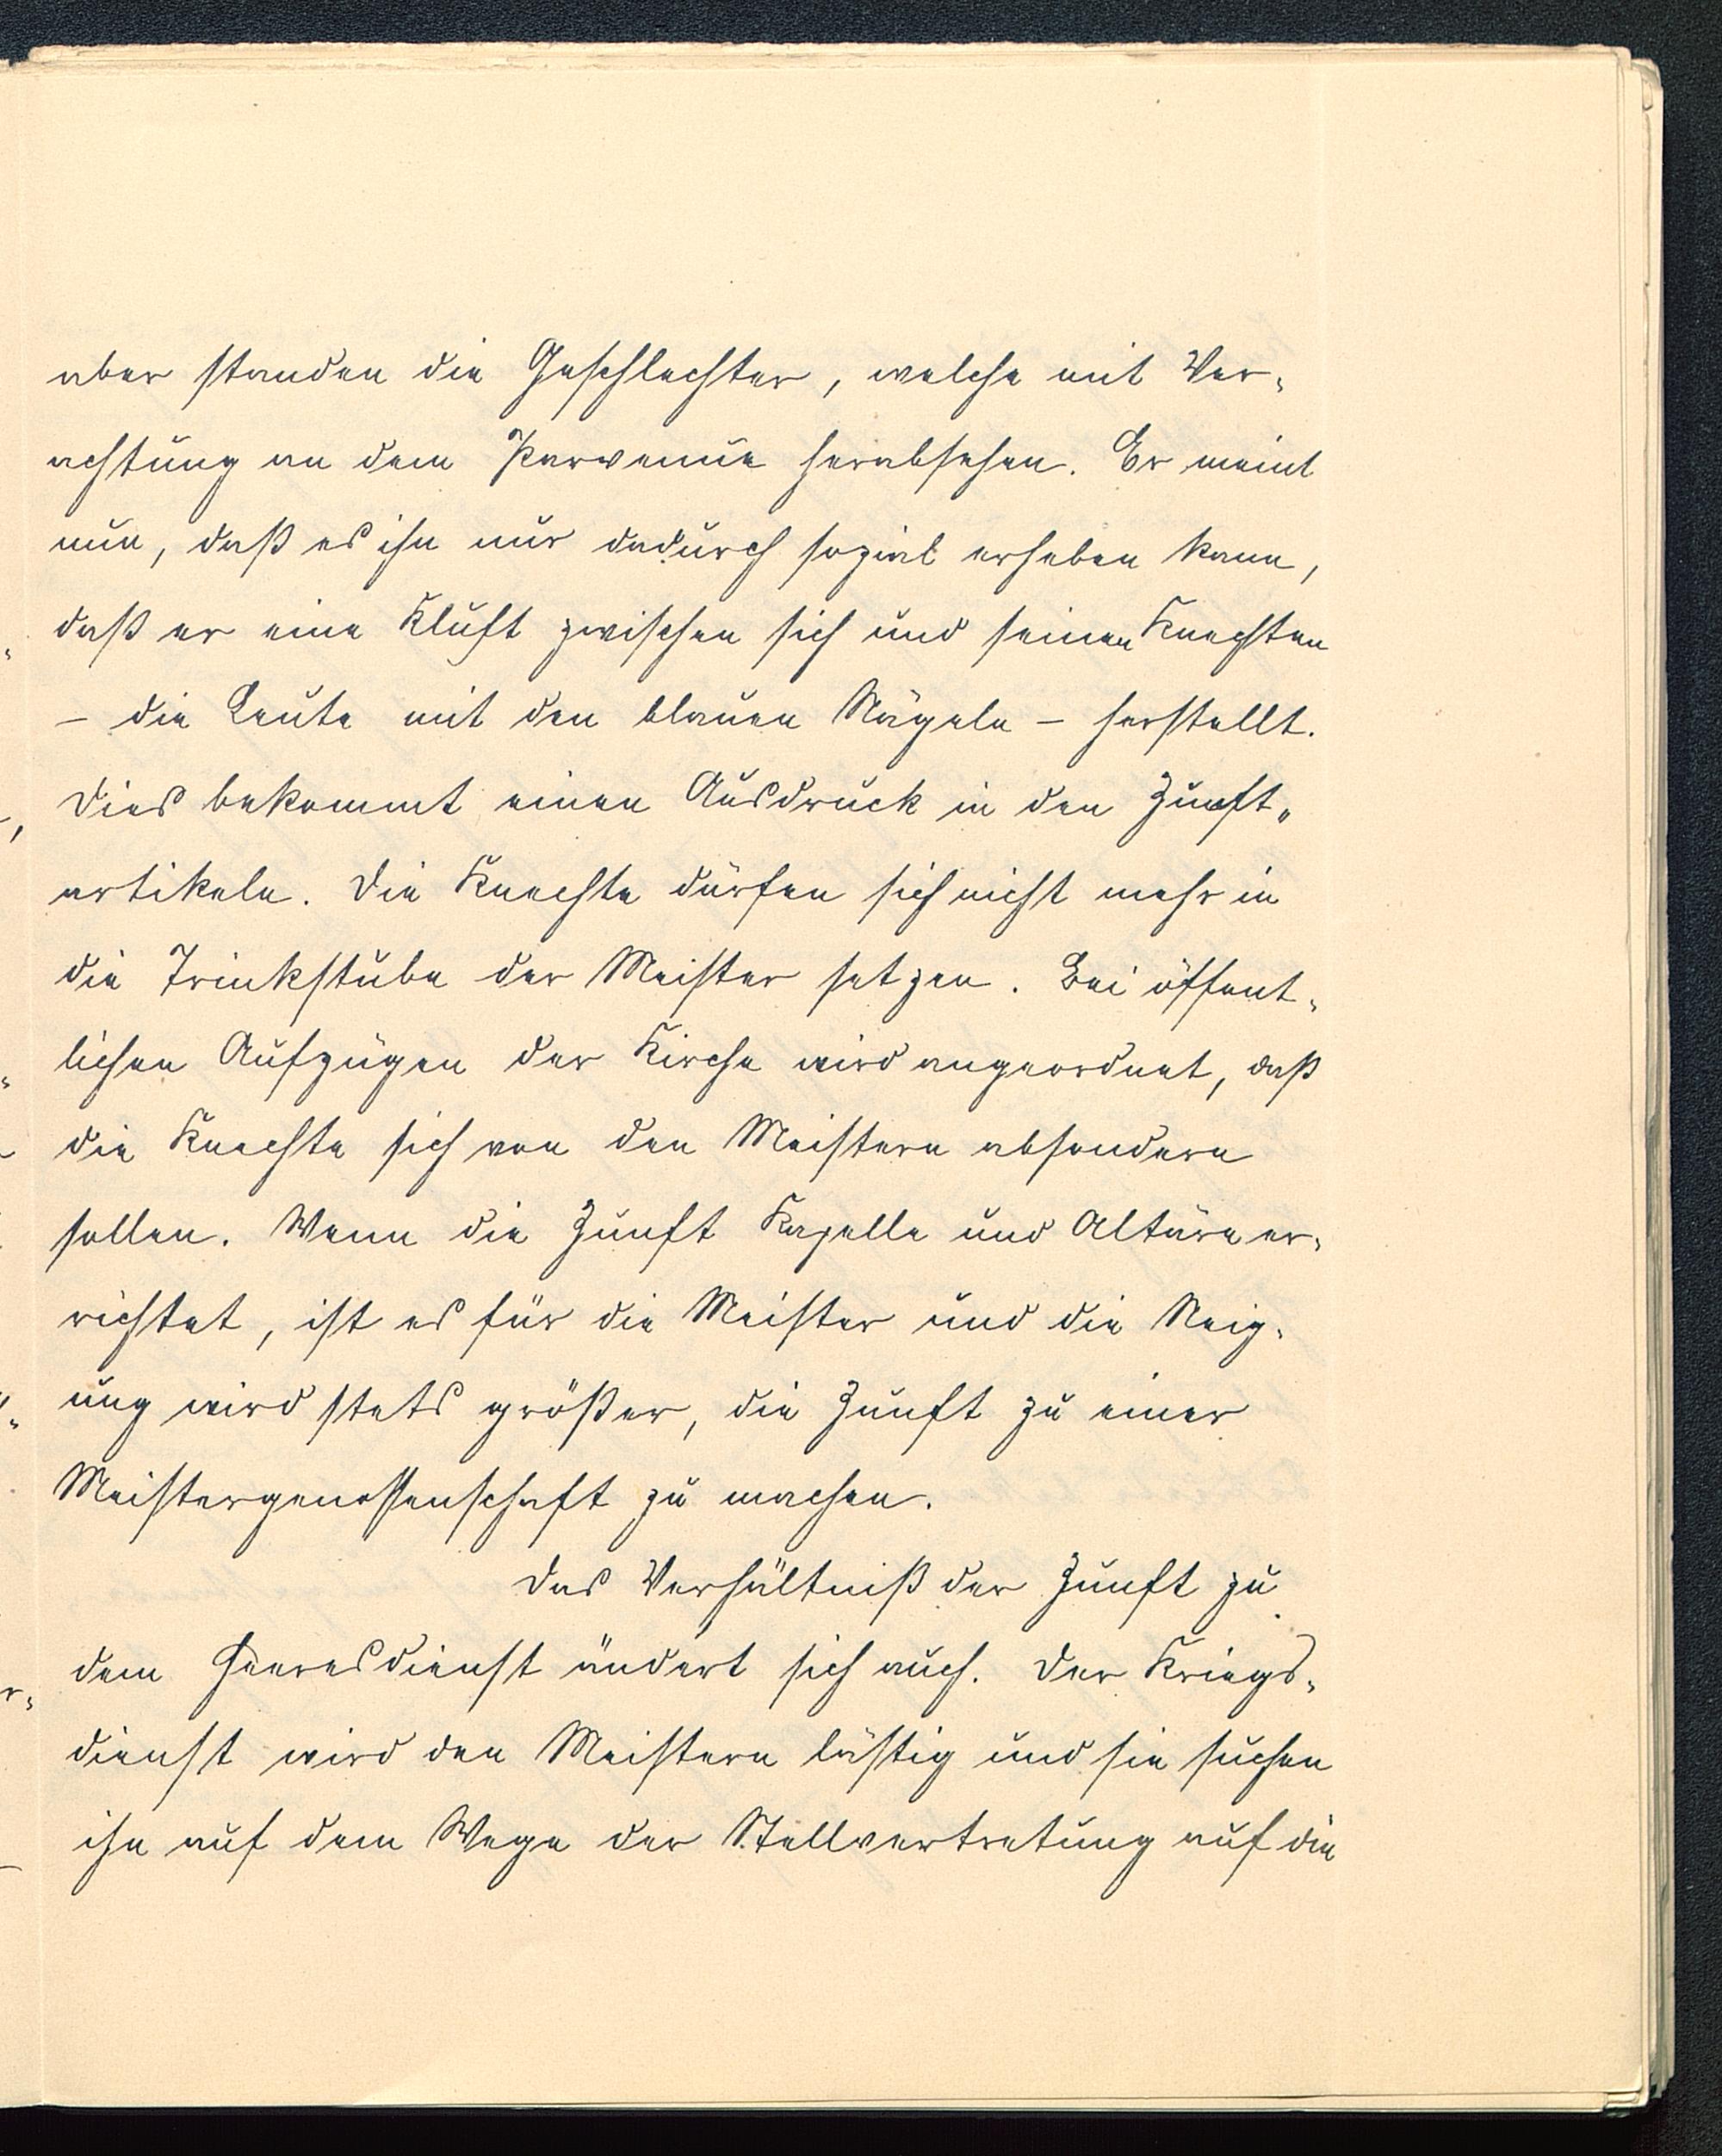 aber standen die Geschlechter, welche mit Ver-
achtung an dem Parvenüe herabsehen. Er meint
nun, daß es ihn nur dadurch sozial erheben kann,
daß er eine Kluft zwischen sich und seinen Knechten
– die Leute mit den blauen Nägeln – herstellt.
Dies bekommt einen Ausdruck in den Zunft-
artikeln. Die Knechte dürfen sich nicht mehr in
die Trinkstube der Meister setzen. Bei öffent-
lichen Aufzügen der Kirche wird angeordnet, daß
die Knechte sich von den Meistern absondern
sollen. Wenn die Zunft Kapelle und Altäre er-
richtet, ist es für die Meister und die Neig-
ung wird stets größer, die Zunft zu einer
Meistergenossenschaft zu machen.
Das Verhältniß der Zunft zu
dem Heeresdienst ändert sich auch. Der Kriegs-
dienst wird den Meistern lästig und sie suchen
ihn auf dem Wege der Stellvertretung auf die